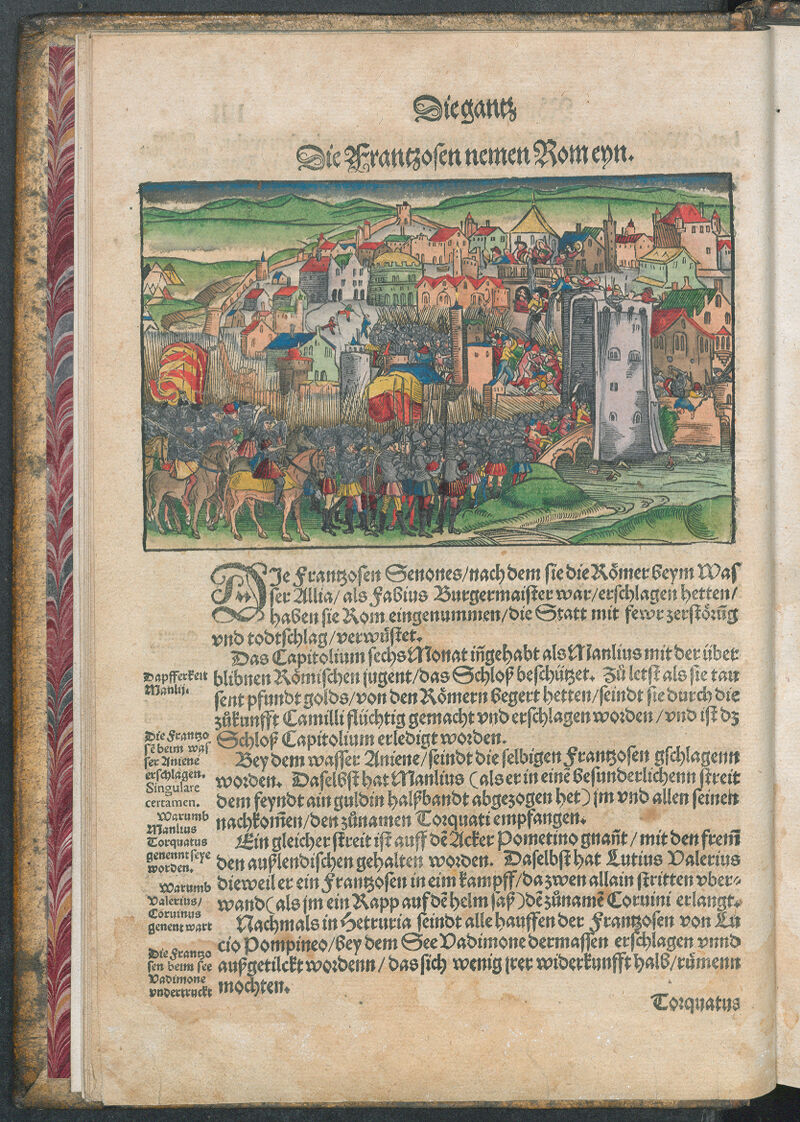 Die gantz
Die Frantzosen nemen Rom eyn.
DIe Frantzosen Senones/nach dem sie die Römer beym Was
ser Allia/als Fabius Burgermaister war/erschlagen hetten/
haben sie Rom eingenummen/die Statt mit fewr zerstörūg
vnd todtschlag/verwüstet.
Das Capitolium sechs Monat iñgehabt als Manlius mit der über
blibnen Römischen jugent/das Schloß beschützet. Zů letst als sie tau
sent pfundt golds/von den Römern begert hetten/seindt sie durch die
zůkunfft Camilli flüchtig gemacht vnd erschlagen worden/vnd ist dz
Schloß Capitolium erledigt worden.
Bey dem wasser Aniene/seindt die selbigen Frantzosen gschlagenn
worden. Daselbst hat Manlius (als er in einē besunderlichenn streit
dem feyndt ain guldin halßbandt abgezogen het) jm vnd allen seinen
nachkom̄en/den zůnamen Torquati empfangen.
Ein gleicher streit ist auff dē Acker Pometino gnañt/mit den frem̄
den außlendischen gehalten worden. Daselbst hat Lutius Valerius
dieweil er ein Frantzosen in eim kampff/da zwen allain stritten vber-
wand (als jm ein Rapp auf dē helm saß) dē zůnamē Coruini erlangt.
Nachmals in Hetruria seindt alle hauffen der Frantzosen von Lu
cio Pompineo/bey dem See Vadimone dermassen erschlagen vnnd
außgetilckt wordenn/das sich wenig jrer widerkunfft halb/rümenn
mochten.
Torquatus
Dapfferkeit
Manlij.
Die Frantzo
sē beim was
ser Aniene
erschlagen.
Singulare
certamen.
Warumb
Manlius
Torquatus
genennt seye
worden.
Warumb
Valerius/
Coruinus
genent wart
Die Frantzo
sen beim see
Vadimone
vndertruckt